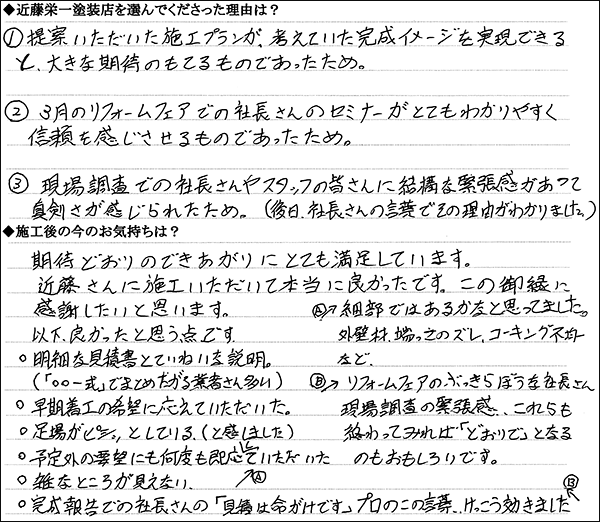 ◆近藤栄一塗装店を選んでくださった理由は？
① 提案いただいた施工プランが、考えていた完成イメージを実現できる
と、大きな期待のもてるものであったため。
② 3月のリフォームフェアでの社長さんのセミナーがとてもわかりやすく
信頼を感じさせるものであったため。
③ 現場調査での社長さんやスタッフの皆さんに結構な緊張感があって
真剣さが感じられたため。（後日、社長さんの言葉でその理由がわかりました。）
◆施工後の今のお気持ちは？
期待どおりのできあがりにとても満足しています。
近藤さんに施工いただいて本当に良かったです。この御縁に
感謝したいと思います。
以下、良かったと思う点です
○ 明細な見積書とていねいな説明。
（「○○一式」でまとめたがる業者さん多い）
○ 早期着工の希望に応えていただいた。
○ 足場がピシッとしている（と感じました）
○ 予定外の要望にも何度も即応していただいた
○ 雑なところが見えない Ⓐ
○ 完成報告での社長さんの「見積は命がけです」プロのこの言葉、けっこう効きました Ⓑ
Ⓐ→ 細部ではあるかなと思ってました。
外壁材、端っこのズレ、コーキング不均
など、
Ⓑ→ リフォームフェアのぶっきらぼうな社長さん
現場調査の緊張感、これらも
終わってみれば「どおりで」となる
のもおもしろいです。